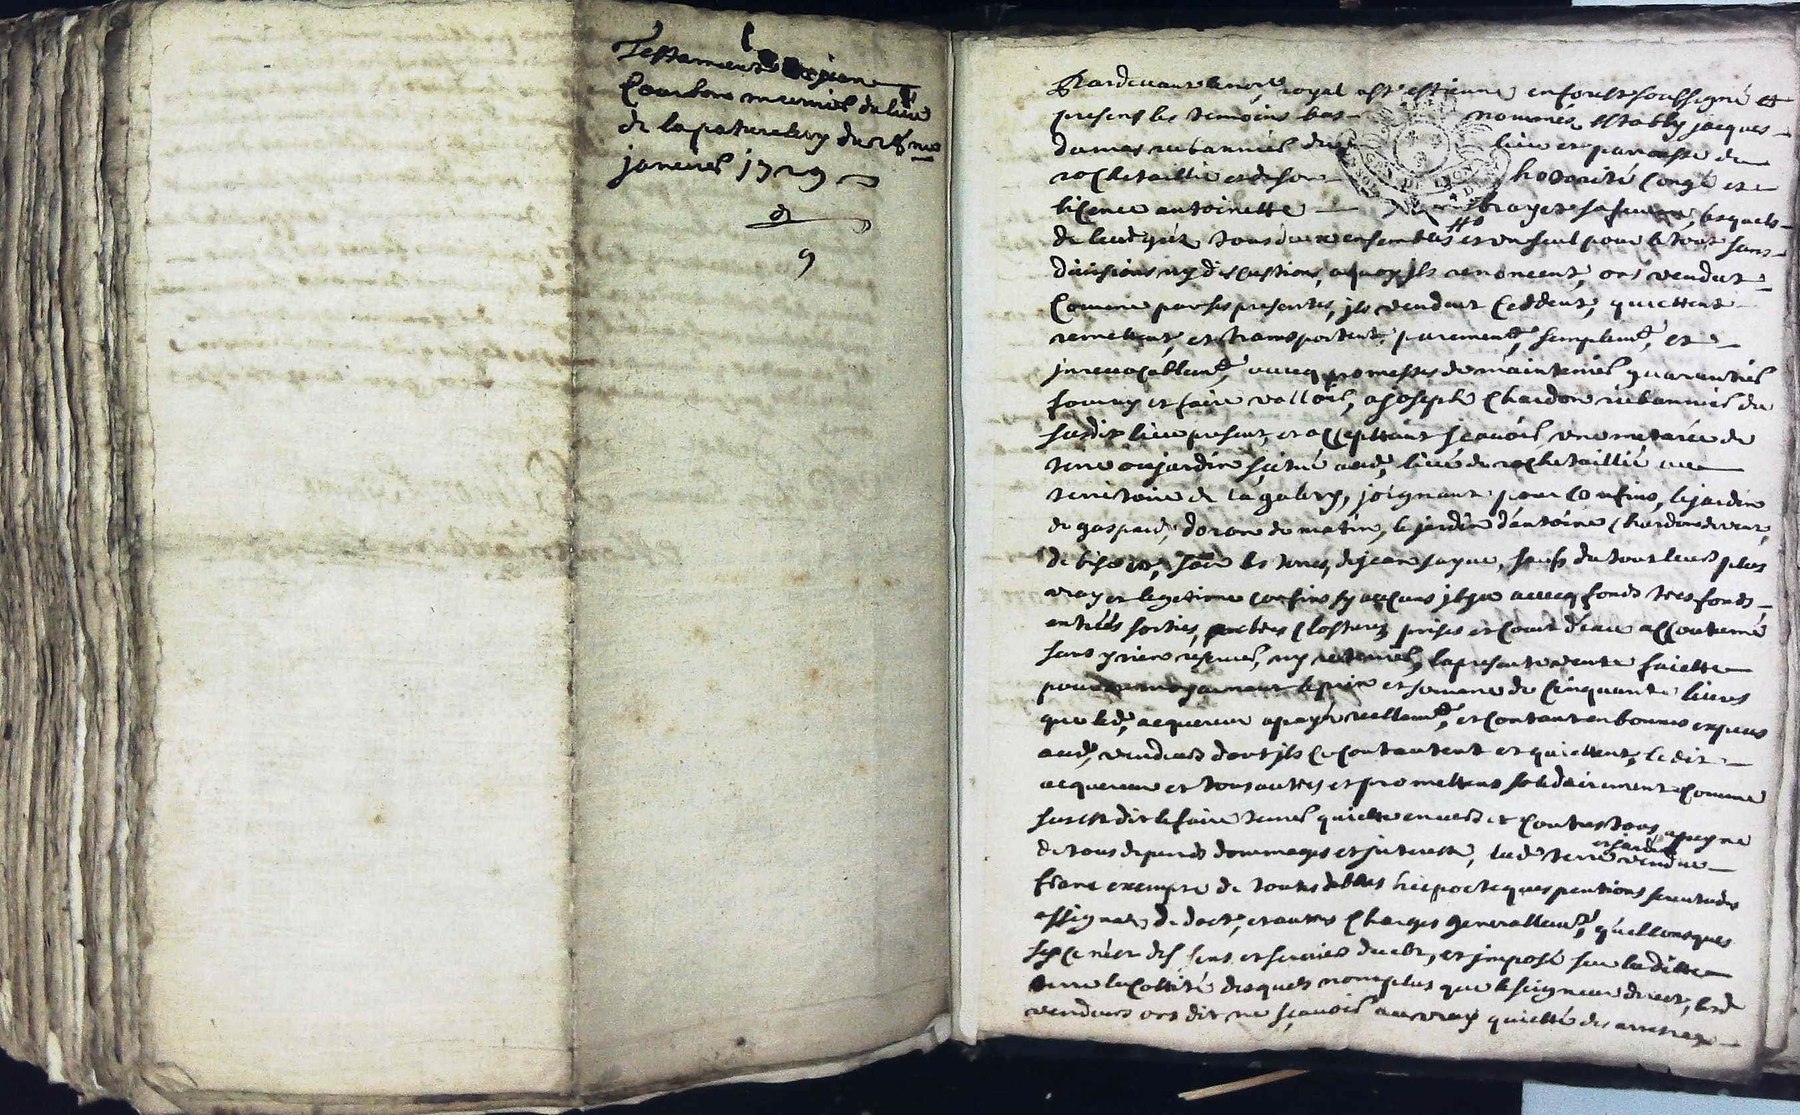 Testament de jean
Courbon meusnier du lieu
de la paturel du 28me
janvier 1729
9
Pardevant le nore royal a st estienne en forest soussigné et
presens les temoins bas nommés, establÿ jacques
dumas rubannier du lieu et paroisse de
rochetaillié et de son hotorité congé et
licence antoinette brayet sa femme, lesquels
de leur gré tous deux ensembles et un seul pour le tout sans
divisions ny discustions, a quoy ils renoncent, ont vendut
comme par ses presentes, ils vendent ceddent, quiettent
remettent, et transportent, purement, simplemt, et
jrrevocablemt, avecq promesses de maintenir guarentir
fournir et faire valloir, a joseph Chardon rubannier du
susdit lieu present, et acceptant scavoir une metarée de
terre ou jardin scitué aud, lieu de rochetaillié au
territoire de la galery, joignant pour confins, le jardin
de gaspard, doron de matin, le jardin d'antoine chardon de vent,
de bise et soir les terres, de jean fayue, saufs du tout leurs plus
vray et legitime confins sy aucuns jl y a avecq fonds tres fonds,
entrées sorties, clostures prises et cours d'eau accoutumé
sans y rien reserver, ny retenir, la presente vente faiette
pour et moyennant le prix et somme de cinquante livres
que led, acquereur a payé reellemt, et contant en bonnes especes
aud, vendeurs dont jls ce contantent et quiettent, ledit
acquereur et tous autres et promettent solidairement comme
sus est dit le faire tenir quiette envers et contre tous, a peyne
de tous depends dommages et jnterests, lad terre et jardin vendue
franc exempte de toutes debtes hiepoteques pentions servitudes
assignats de doct, et autres charges generallemt, quelconques
sy ce n'est des sens et servies deubt, et jmposé sur laditte
terre la cottité desquels non plus que le seigneur direct, lesd
vendeurs ont dit ne sçavoir au vray quietté des arrerages